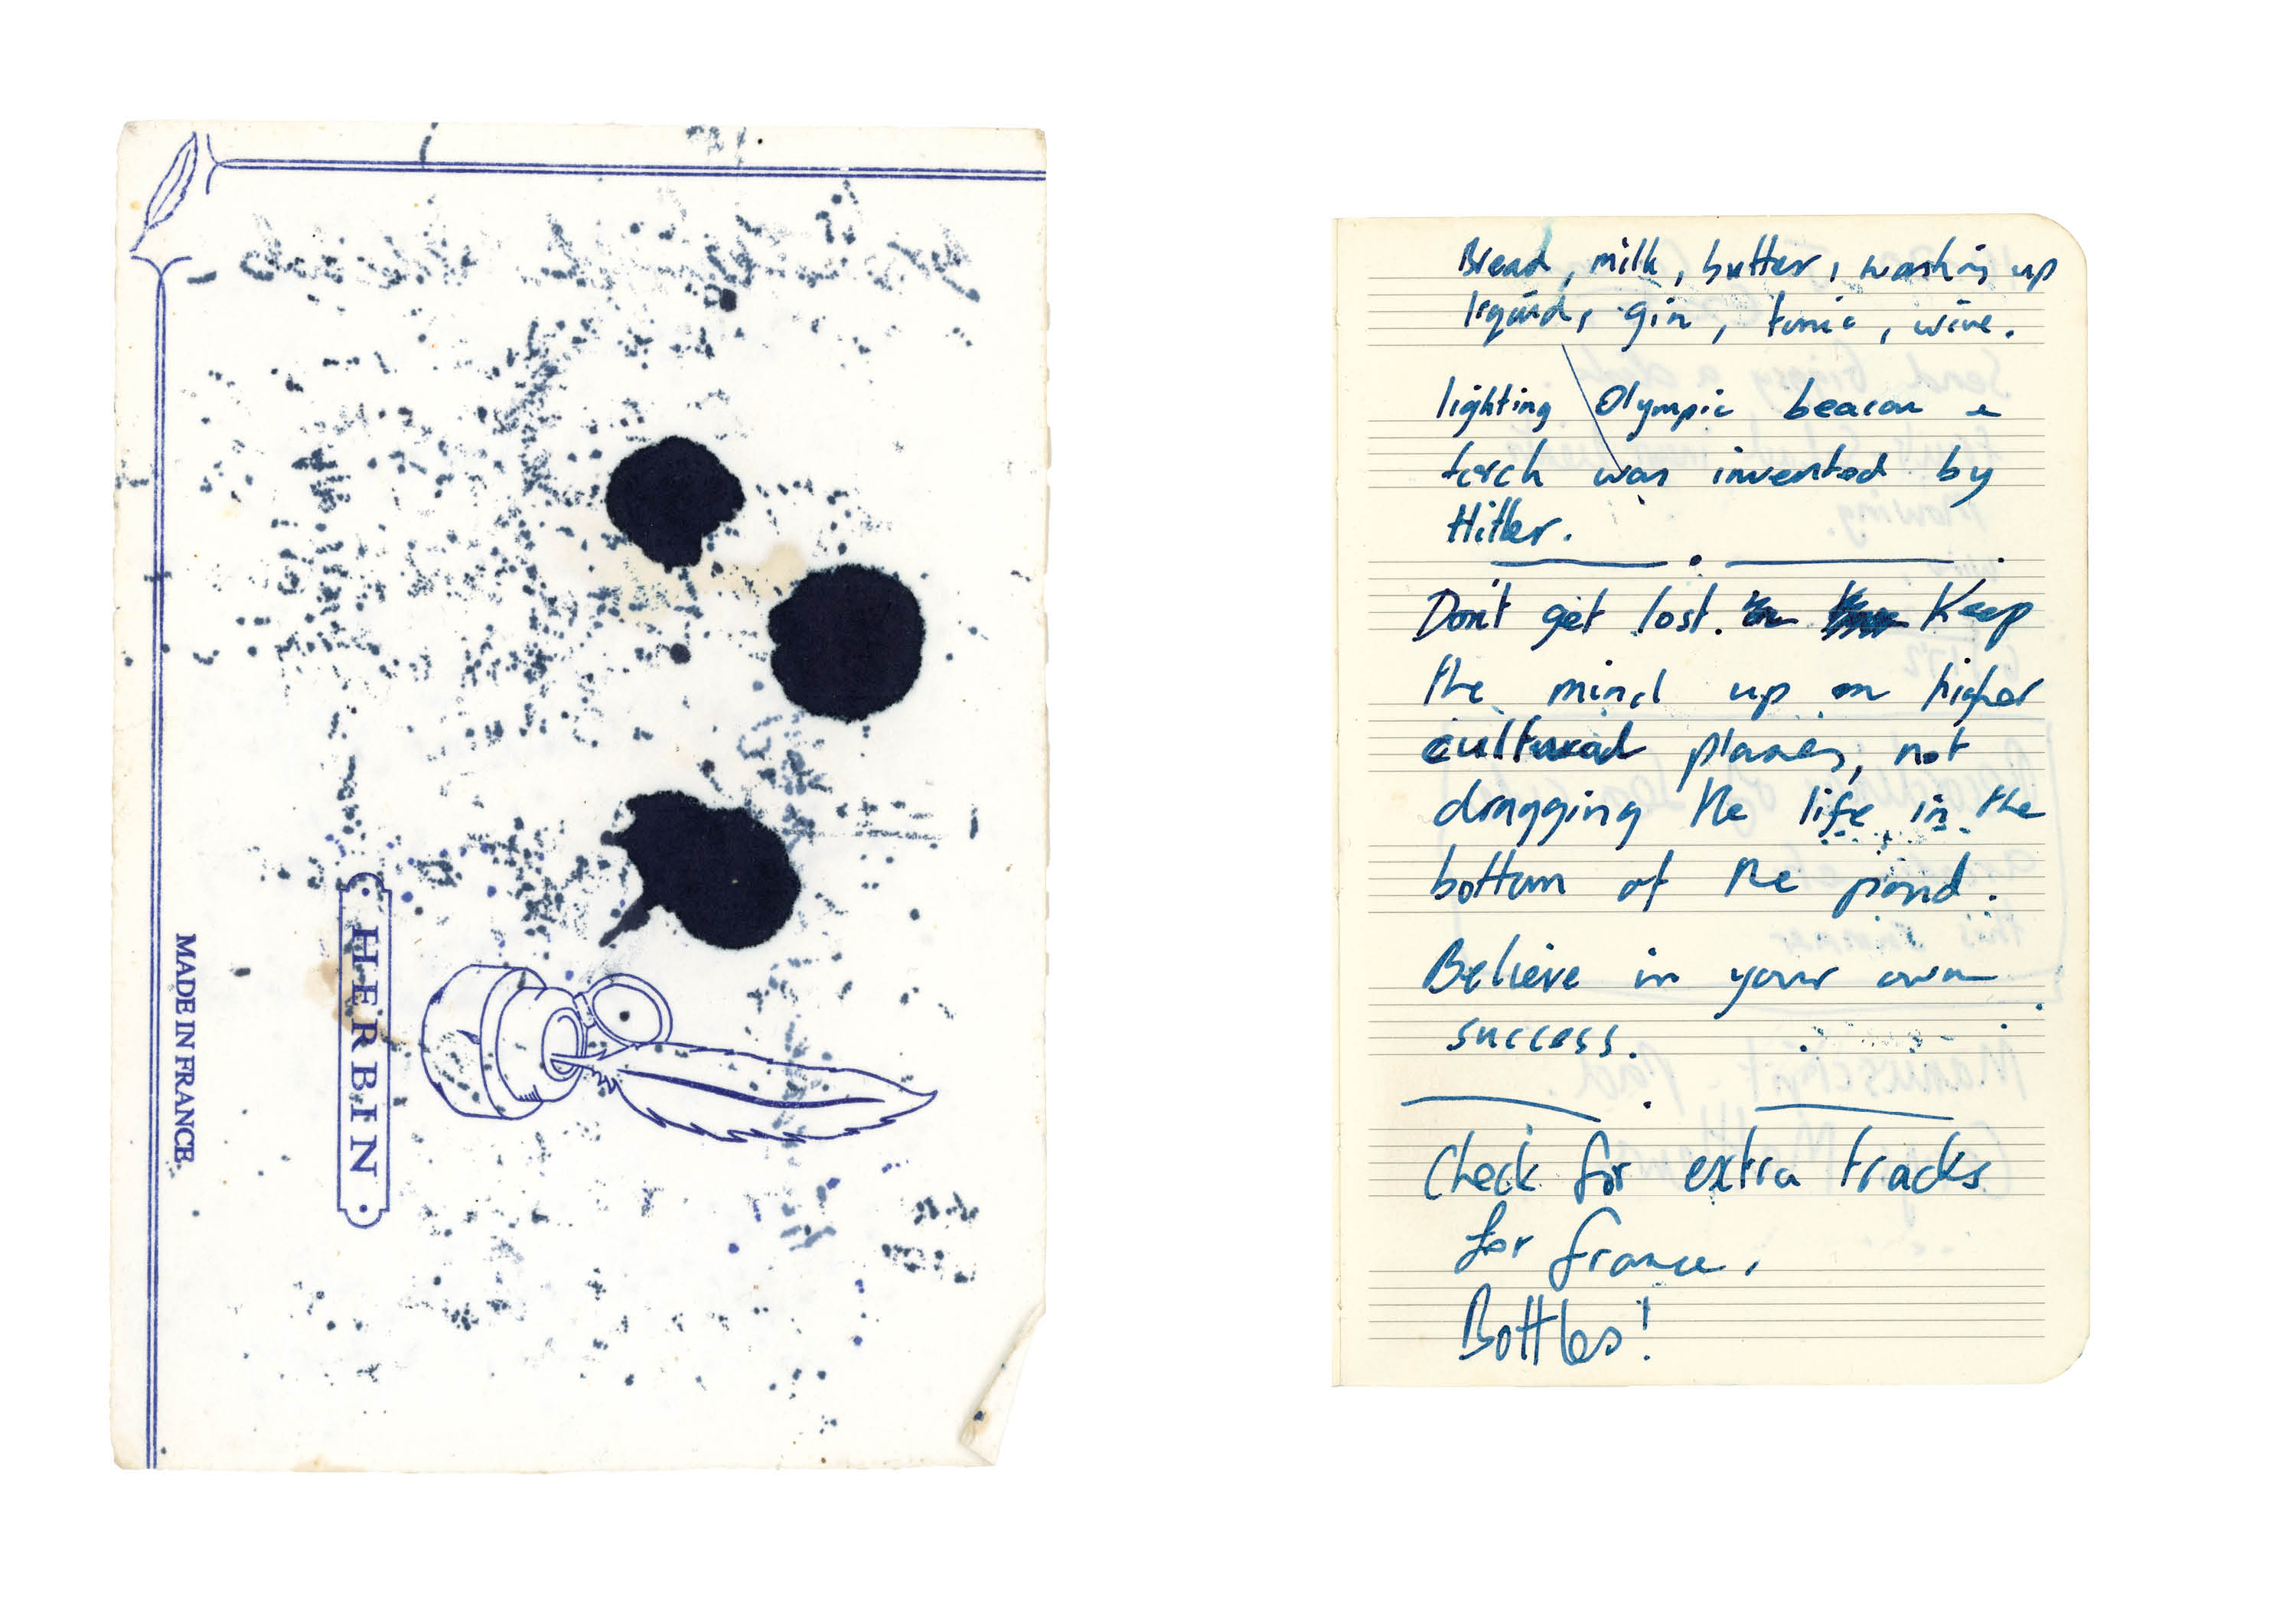 MADE IN FRANCE.
HERBIN
Bread, milk, butter, washing up
liquid, gin, tonic, wine.
lighting Olympic beacon &
torch was invented by
Hitler.
Don't get lost. Keep
the mind up on higher
cultural planes, not
dragging the life in the
bottom of the pond.
Believe in your own
success.
Check for extra tracks
for france,
Bottles!